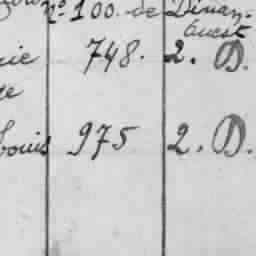 n° 100. de Dinan-
Ouest
748. 2. D.
Louis 975 2. D.